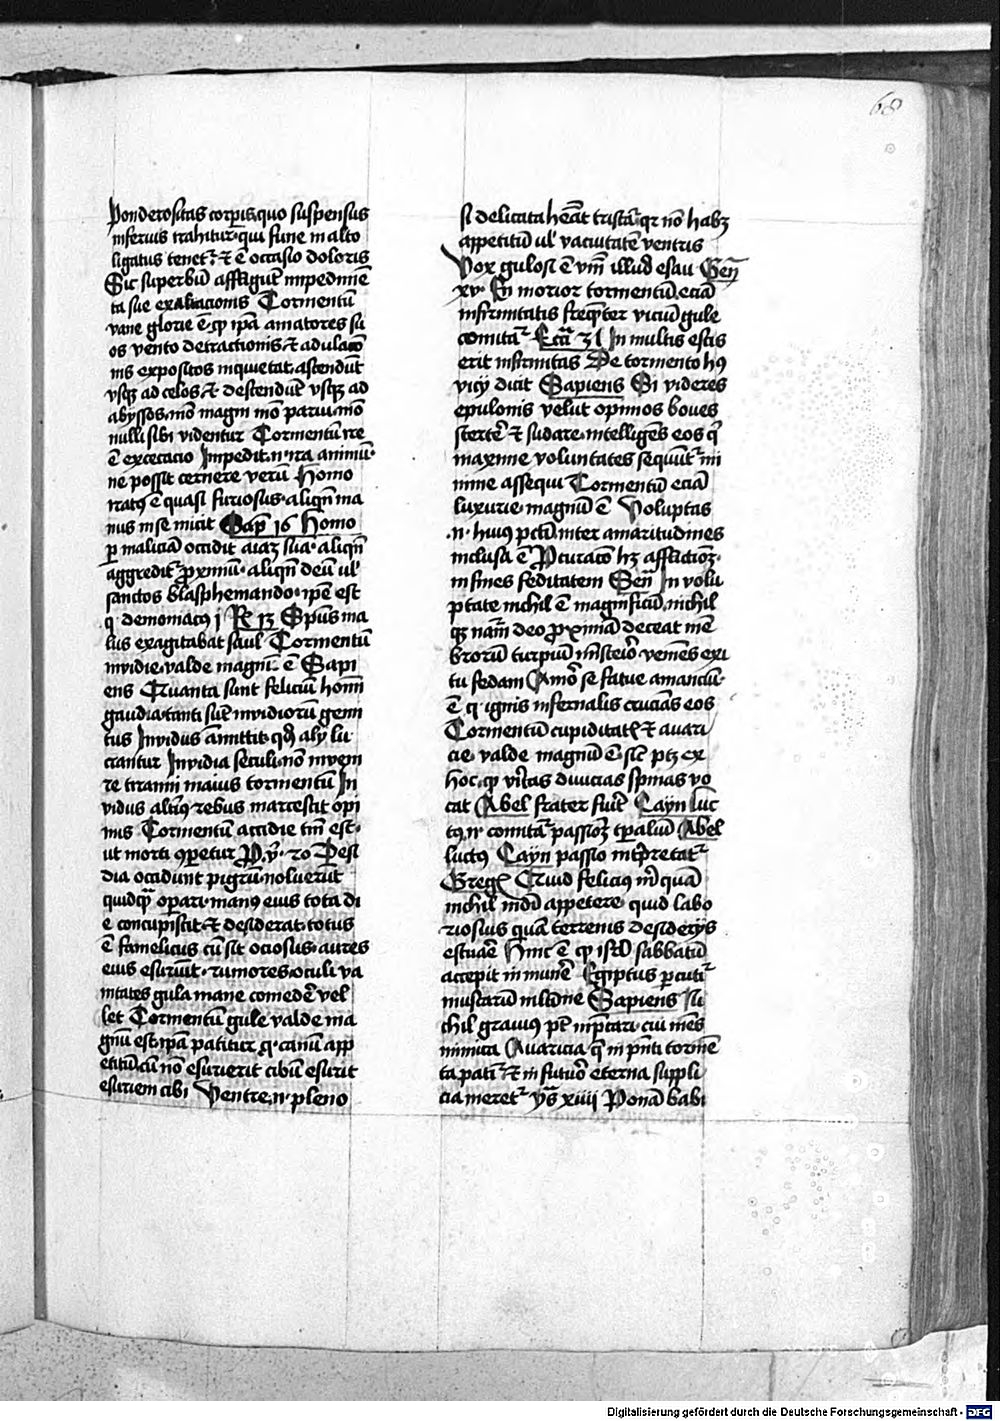 68
ponderositas corp̄is quo suspensus
inferius trahitur qui fune in alto
ligatus tenet᷑ ⁊ ē occasio doloris
Sic superbū affligūt impedimē
ta sue exaltacionis Tormentū
vane glorie ē qꝫ ip̄ā amatores su
os vento detractionis ⁊ adulaco
nis expositos inquietat astendūt
vsqꝫ ad celos ⁊ destendūt vsqꝫ ad
abyssos mō magni mō parui mō
nulli sibi videntur Tormentū ire
ē excecacio Impedit .n. ira animū
ne possit cernere verū Homo
iratꝰ ē quasi furiosus aliqn̄ ma
nus in se micit Sap̄ 16 Homo
ꝑ maliciā occidit aīaꝫ suā aliqn̄
aggredit᷑ ꝓximū aliqn̄ deū ul'
sanctos blasphemando ip̄e est
q demoniacꝰ j Rē 13 Sp̄us ma
lus exagitabat saul Tormentū
inuidie valde magnū ē Sapi
ens Quanta sunt feliciū homī
gaudia tanti sūt inuidiorū gemi
tus Inuidus amittit qd̄ alij lu
crantur Inuidia seculi nō inueni
re tiranni maius tormentū In
uidus altiꝰ rebus marcestit opi
mis Tormentū accidie tm̄ est
ut morti ꝯparetur P. ꝟ. 20 Desi
dia occidunt pigrū noluerūt
quidqꝫ operari manꝰ eius tota di
e concupistit ⁊ desiderat totus
ē famelicus cū sit ociosus aures
eius esuriūt rumores oculi va
nitates gula mane comedē vel
let Tormentū gule valde ma
gnū est ip̄ā patitur q canū app
etitū cū nō esurierit cibū esurit
esuriem cibi Ventre .n. pleno
si delicata hēāt tristat᷑ qꝛ nō habꝫ
appetitū ul' vacuitatē ventris
Vox gulosi ē vnū illud esau Gen̄
xv. En morior tormentū eciā
infirmitatis freqn̄ter viciū gule
comitat᷑ Ecca᷑ 31 In multis estis
erit infirmitas De tormento hꝰ
vicij dicit Sapiens Si videres
epulonis velut opimos boues
sterterē ⁊ sudare intelligēs eos q̄
maxime voluntates sequūt᷑ mi
nime assequi Tormentū eciā
luxurie magnū ē Voluptas
.n. huiꝰ pctī inter amaritudines
inclusa ē Pcuracō hꝫ afflictioꝫ
in fines feditatem Sen̄ In volu
ptate nichil ē magnificū nichil
qꝫ nām̄ deo ꝓximā deceat mē
brorū turpiū mīsteiō veniēs exi
tu fedam Amor se fatue amanciū
ē q ignis infernalis crucians eos
Tormentū cupiditatꝭ ⁊ auari
cie valde magnū ē sic ptꝫ ex
hoc qꝫ vītas diuicias spinas vo
cat Abel frater fuit Cayn luc
tꝰ .n. comitat᷑ passioꝫ tp̄aliū Abel
luctꝰ Cayn passio int̄pretat᷑
Gregꝰ Quid feliciꝰ m̄ quā
nichil mūdi appetere quid labo
riosius quā terrenis desiderijs
estuare Hinc ē qꝫ isrl̄ sabbatū
accepit in munē Egiptus ꝑcutit᷑
muscarū mltōne Sapiens Ni
chil grauiꝰ pōt imp̄tari cui mēs
inimica Auaricia q̄ in pn̄ti tormē
ta patit᷑ ⁊ in futuō eterna suppli
cia meret᷑ ysā xiiij Ponā babi
Digitalisierung gefördert durch die Deutsche Forschungsgemeinschaft - DFG